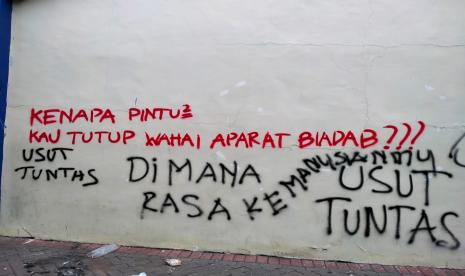 KENAPA PINTU2
KAU TUTUP WAHAI APARAT BIADAB???
USUT
TUNTAS
DIMANA
RASA KEMANUSIANMU
USUT
TUNTAS